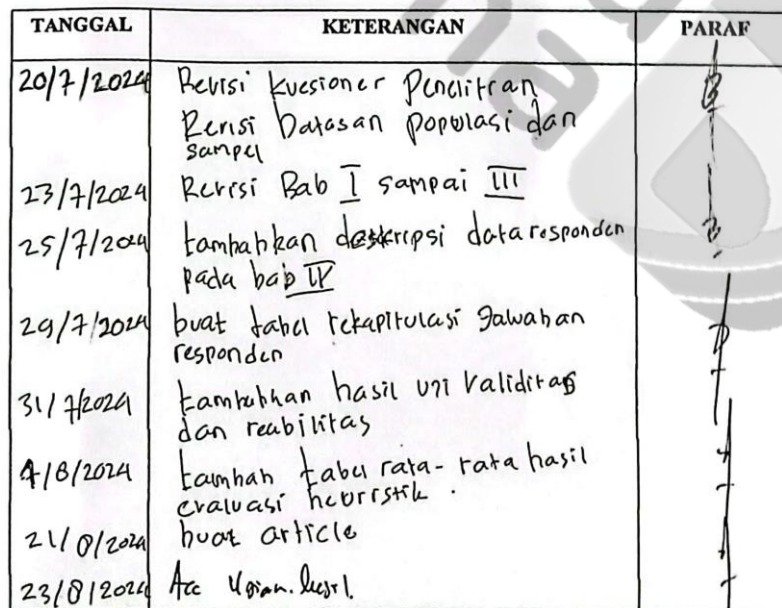 TANGGAL KETERANGAN PARAF
20/7/2024 Revisi kuesioner Penelitian
Revisi Batasan populasi dan
sampel
23/7/2024 Revisi Bab I sampai III
25/7/2024 tambahkan deskripsi data responden
pada bab IV
29/7/2024 buat tabel rekapitulasi Jawaban
responden
31/7/2024 tambahkan hasil uji Validitas
dan reabilitas
4/8/2024 tambah tabel rata-rata hasil
evaluasi heuristik.
21/8/2024 buat article
23/8/2024 Acc Ujian hasil.